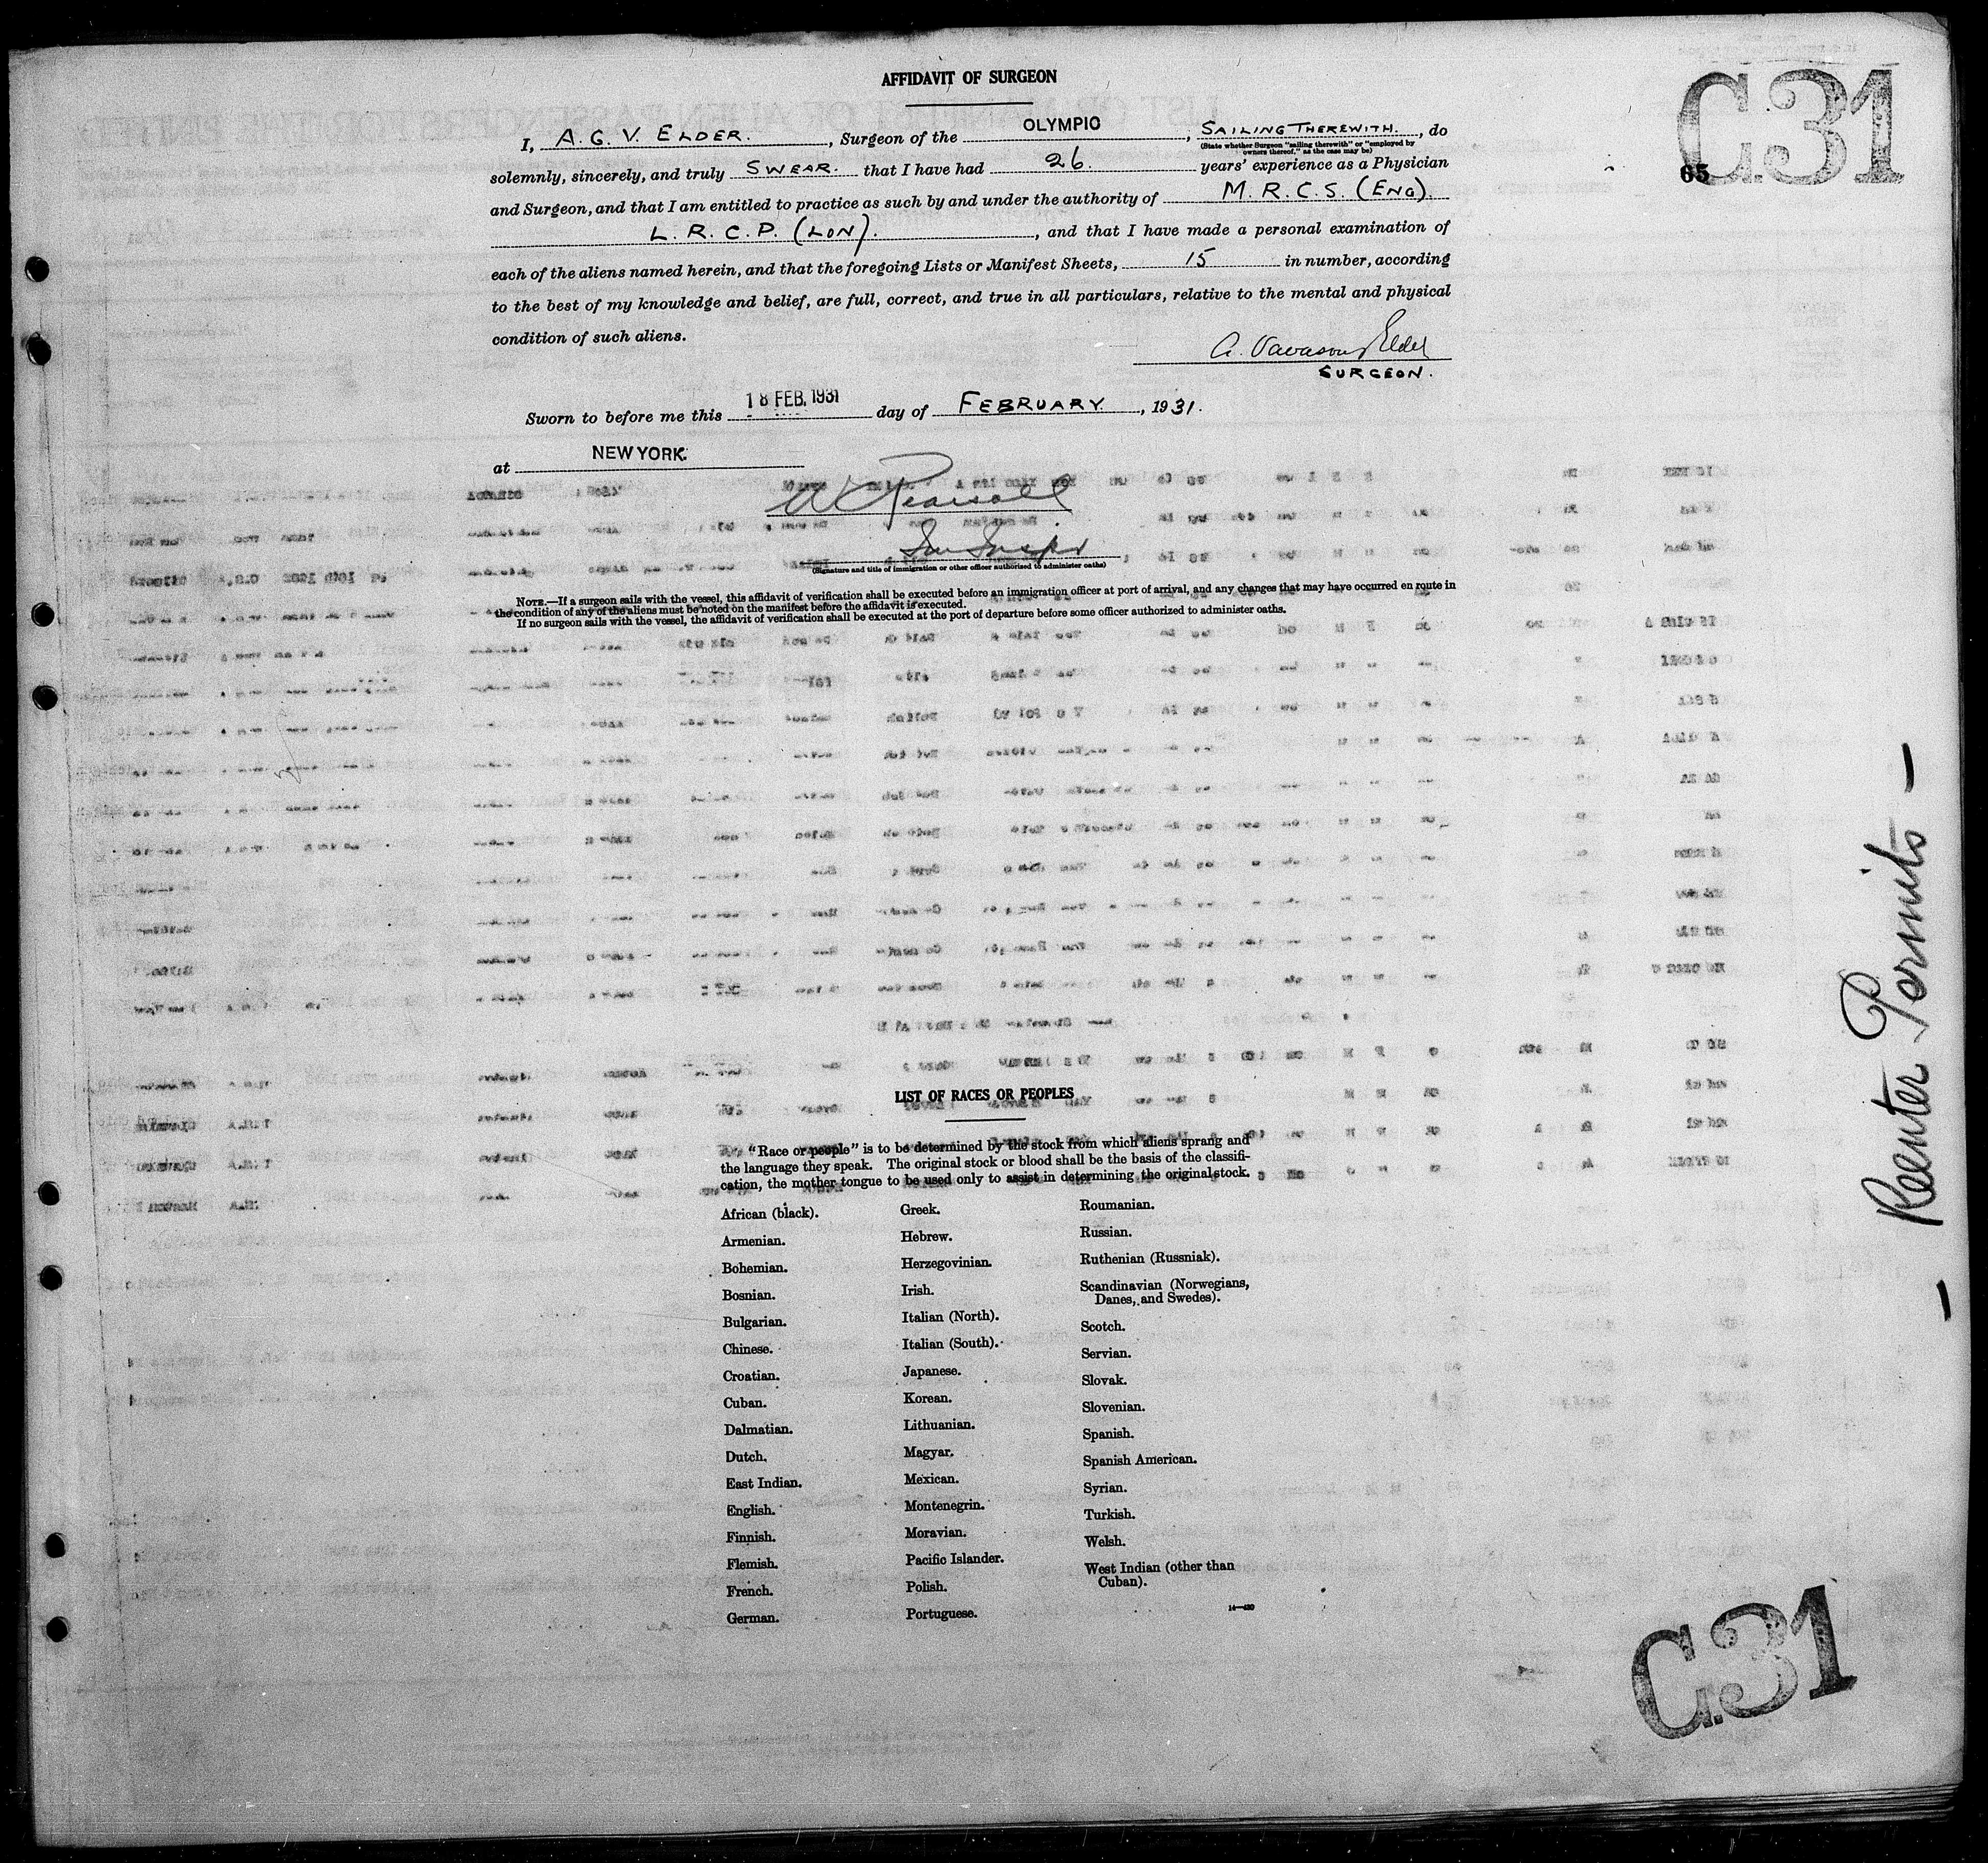 AFFIDAVIT OF SURGEON
C.31
65
I, A. G. V. ELDER. , Surgeon of the OLYMPIC , SAILING THEREWITH. , do
(State whether Surgeon "sailing therewith" or "employed by
owners thereof," as the case may be)
solemnly, sincerely, and truly SWEAR. that I have had 26. years' experience as a Physician
and Surgeon, and that I am entitled to practice as such by and under the authority of M.R.C.S. (ENG).
L.R.C.P. (LON). , and that I have made a personal examination of
each of the aliens named herein, and that the foregoing Lists or Manifest Sheets, 15 in number, according
to the best of my knowledge and belief, are full, correct, and true in all particulars, relative to the mental and physical
condition of such aliens.
A. Vavasour Elder
SURGEON.
Sworn to before me this 18 FEB. 1931 day of FEBRUARY. , 1931.
at NEW YORK.
(Signature and title of immigration or other officer authorized to administer oaths)
NOTE.—If a surgeon sails with the vessel, this affidavit of verification shall be executed before an immigration officer at port of arrival, and any changes that may have occurred en route in
the condition of any of the aliens must be noted on the manifest before the affidavit is executed.
If no surgeon sails with the vessel, the affidavit of verification shall be executed at the port of departure before some officer authorized to administer oaths.
— Reenter Permits —
LIST OF RACES OR PEOPLES
"Race or people" is to be determined by the stock from which aliens sprang and
the language they speak. The original stock or blood shall be the basis of the classifi-
cation, the mother tongue to be used only to assist in determining the original stock.
African (black).
Armenian.
Bohemian.
Bosnian.
Bulgarian.
Chinese.
Croatian.
Cuban.
Dalmatian.
Dutch.
East Indian.
English.
Finnish.
Flemish.
French.
German.
Greek.
Hebrew.
Herzegovinian.
Irish.
Italian (North).
Italian (South).
Japanese.
Korean.
Lithuanian.
Magyar.
Mexican.
Montenegrin.
Moravian.
Pacific Islander.
Polish.
Portuguese.
Roumanian.
Russian.
Ruthenian (Russniak).
Scandinavian (Norwegians,
Danes, and Swedes).
Scotch.
Servian.
Slovak.
Slovenian.
Spanish.
Spanish American.
Syrian.
Turkish.
Welsh.
West Indian (other than
Cuban).
C.31